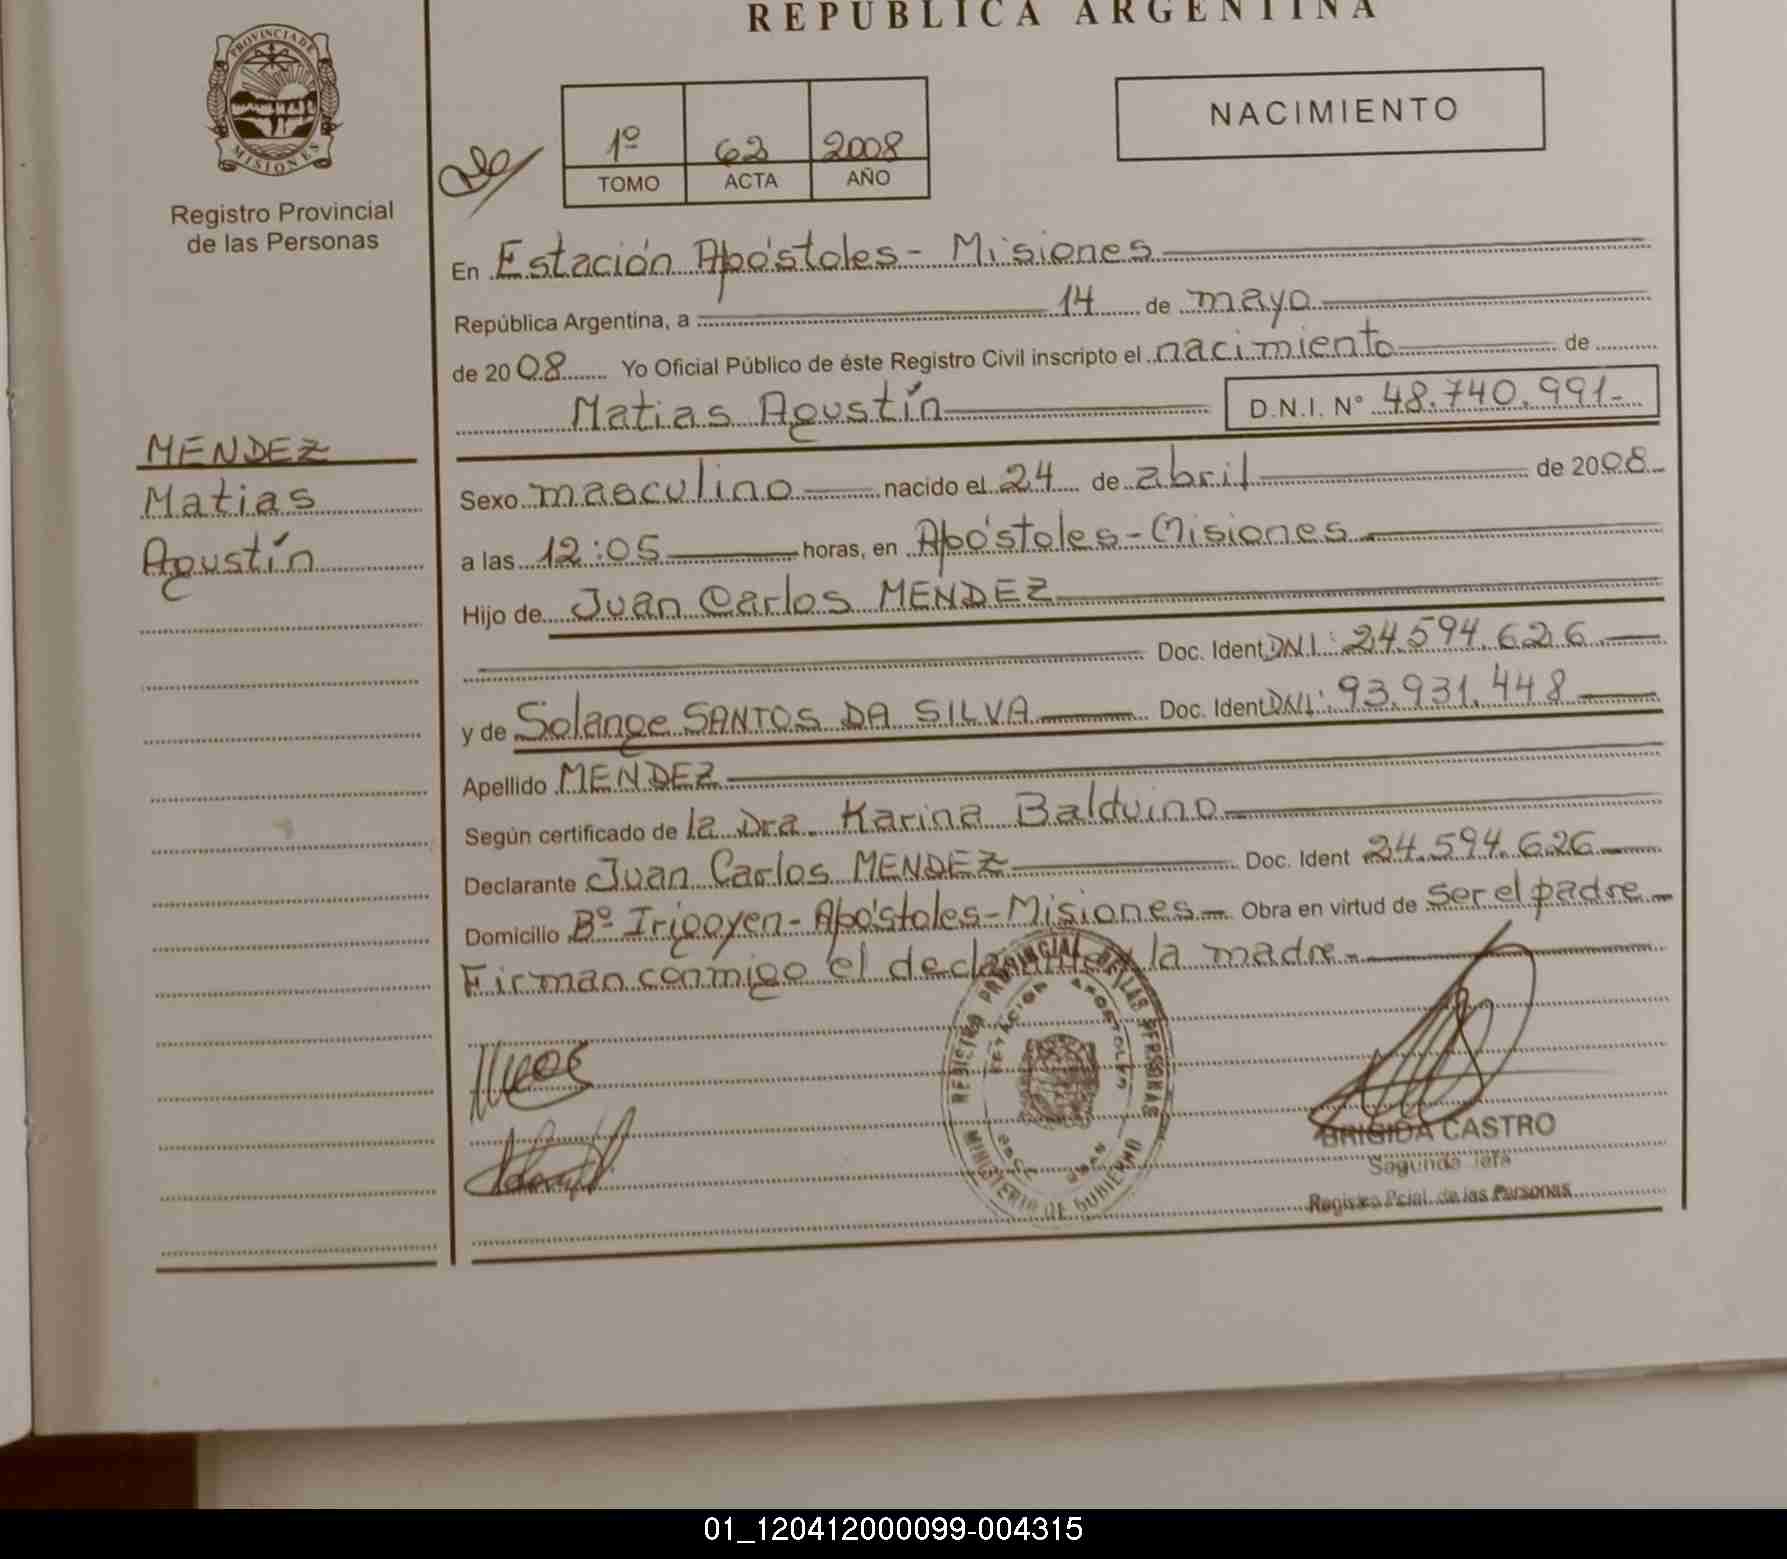 REPUBLICA ARGENTINA
PROVINCIA DE
MISIONES
Registro Provincial
de las Personas
NACIMIENTO
1º 62 2008
TOMO ACTA AÑO
En Estación Apóstoles - Misiones
República Argentina, a 14 de mayo
de 2008 Yo Oficial Público de éste Registro Civil inscripto el nacimiento de
Matias Agustín D.N.I. Nº 48.740.991-
MENDEZ
Matias
Agustín
Sexo masculino nacido el 24 de abril de 2008
a las 12:05 horas, en Apóstoles - Misiones
Hijo de Juan Carlos MENDEZ
Doc. Ident DNI: 24.594.626
y de Solange SANTOS DA SILVA Doc. Ident DNI: 93.931.448
Apellido MENDEZ
Según certificado de la Dra. Karina Balduino
Declarante Juan Carlos MENDEZ Doc. Ident 24.594.626
Domicilio Bº Irigoyen - Apóstoles - Misiones - Obra en virtud de ser el padre -
Firman conmigo el declarante y la madre -
REGISTRO PROVINCIAL DE LAS PERSONAS
ESTACION APOSTOLES
MINISTERIO DE GOBIERNO
BRIGIDA CASTRO
Segunda Jefa
Registro Pcial. de las Personas
01_120412000099-004315